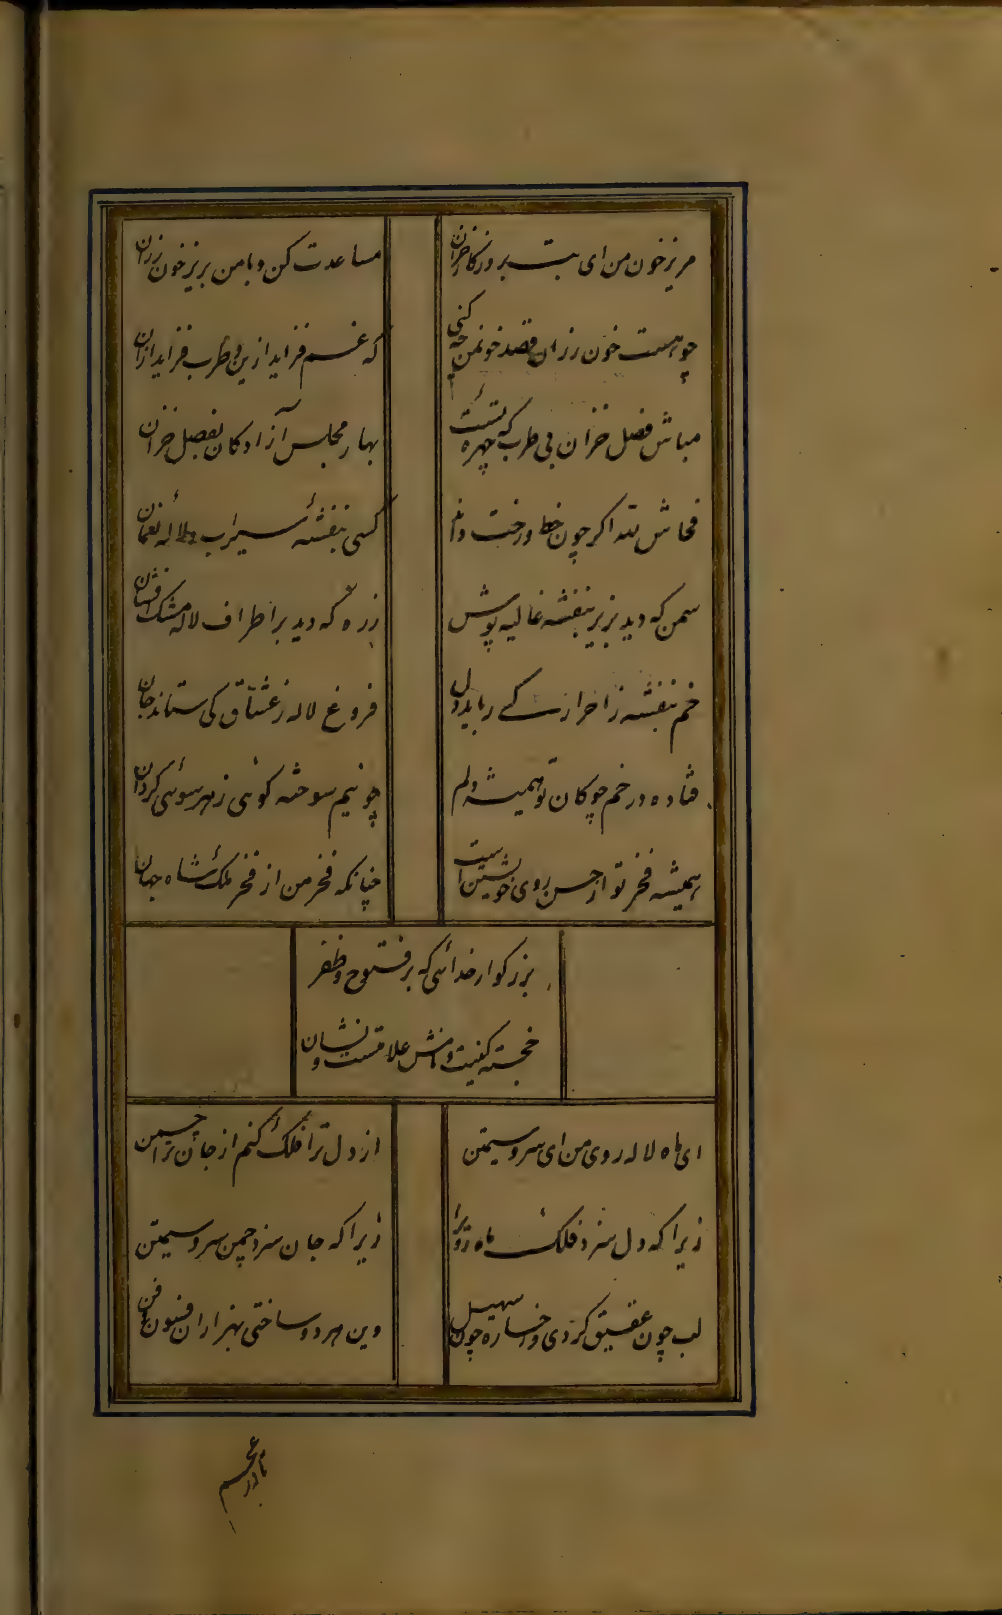 مریز خون من ای بت بروزکار خزان
مساعدت کن و با من بریز خون رزان
چو هست خون رزان قصد خونمن چه کنی
که غم فزاید ازین و طرب فزاید ازان
مباش فصل خزان بی طرب که چهره تست
بهار مجلس آزادکان بفصل خزان
فحاش لله اکر چون خط و رخت دانم
کسی بنفشهٔ سیراب و لالهٔ نعمان
سمن که دید بزیر بنفشه غالیه پوش
زره که دید بر اطراف لاله مشک افشان
خم بنفشه ز احرار کے رباید دل
فروغ لاله ز عشاق کی ستاند جان
فتاده در خم چوکان تو همیشه دلم
چو نیم سوخته کوئی ز هر سوئی کردان
همیشه فخر تو از حسن روی خویشتن است
چنانکه فخر من از فخر ملک شاه جهان
بزرکوار خدائی که بر فتوح و ظفر
خجسته کنیت و نامش علامتست و نشان
ای ماه لاله روی من ای سرو سیمتن
از دل ترا فلک کنم از جان ترا چمن
زیرا که دل سزد فلک ماه روی را
زیرا که جان سزد چمن سرو سیمتن
لب چون عقیق کردی و رخساره چون سهیل
وین هر دو ساختی بهزاران فسون و فن
تا در عجم